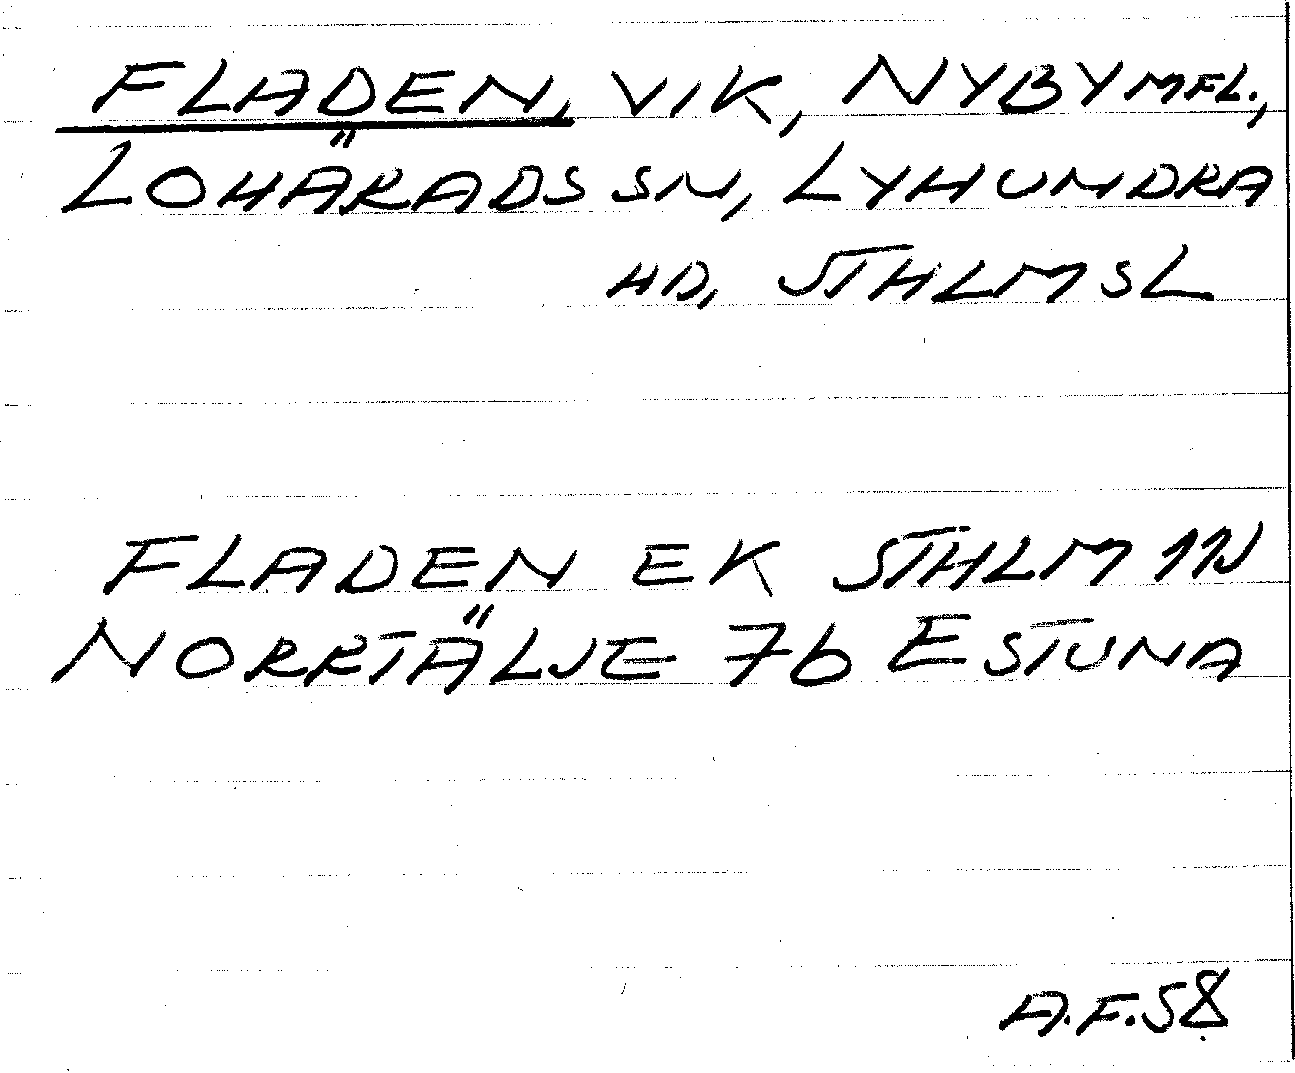 FLADEN, VIK, NYBY MFL.,
LOHÄRADS SN, LYHUNDRA
HD, STHLMS L
FLADEN EK STHLM 11NJ
NORRTÄLJE 7b ESTUNA
A.F.58